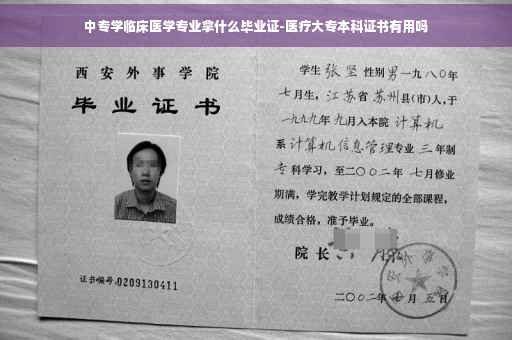 中专学临床医学专业拿什么毕业证-医疗大专本科证书有用吗
西安外事学院
毕业证书
证书编号:0209130411
学生 张坚 性别 男 一九八〇年
七月生，江苏省 苏州县(市)人,于
一九九九年 九月入本院 计算机
系 计算机信息管理专业 三 年制
专科学习，至二〇〇二年 七月修业
期满，学完教学计划规定的全部课程，
成绩合格，准予毕业。
院长
二〇〇二年 月五日